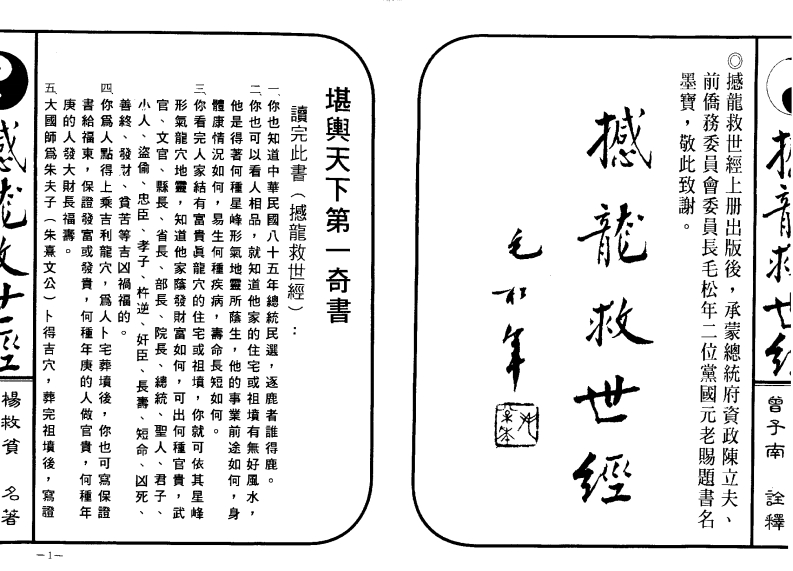 ◎撼龍救世經上册出版後，承蒙總統府資政陳立夫、
前僑務委員會委員長毛松年二位黨國元老賜題書名
墨寶，敬此致謝。
撼龍救世經
毛松年
曾子南 詮釋
堪輿天下第一奇書
讀完此書（撼龍救世經）：
一、你也知道中華民國八十五年總統民選，逐鹿者誰得鹿。
二、你也可以看人相品，就知道他家的住宅或祖墳有無好風水，
他是得著何種星峰形氣地靈所蔭生，他的事業前途如何，身
體康情況如何，易生何種疾病，壽命長短如何。
三、你看完人家結有富貴眞龍穴的住宅或祖墳，你就可依其星峰
形氣龍穴地靈，知道他家蔭發財富如何，可出何種官貴，武
官、文官、縣長、省長、部長、院長、總統、聖人、君子、
小人、盜偷、忠臣、孝子、忤逆、奸臣、長壽、短命、凶死、
善終、發財、貧苦等吉凶禍福的。
四、你爲人點得上乘吉利龍穴，爲人卜宅葬墳後，你也可寫保證
書給福東，保證發富或發貴，何種年庚的人做官貴，何種年
庚的人發大財長福壽。
五、大國師爲朱夫子（朱熹文公）卜得吉穴，葬完祖墳後，寫證
撼龍救世經
楊救貧 名著
—1—